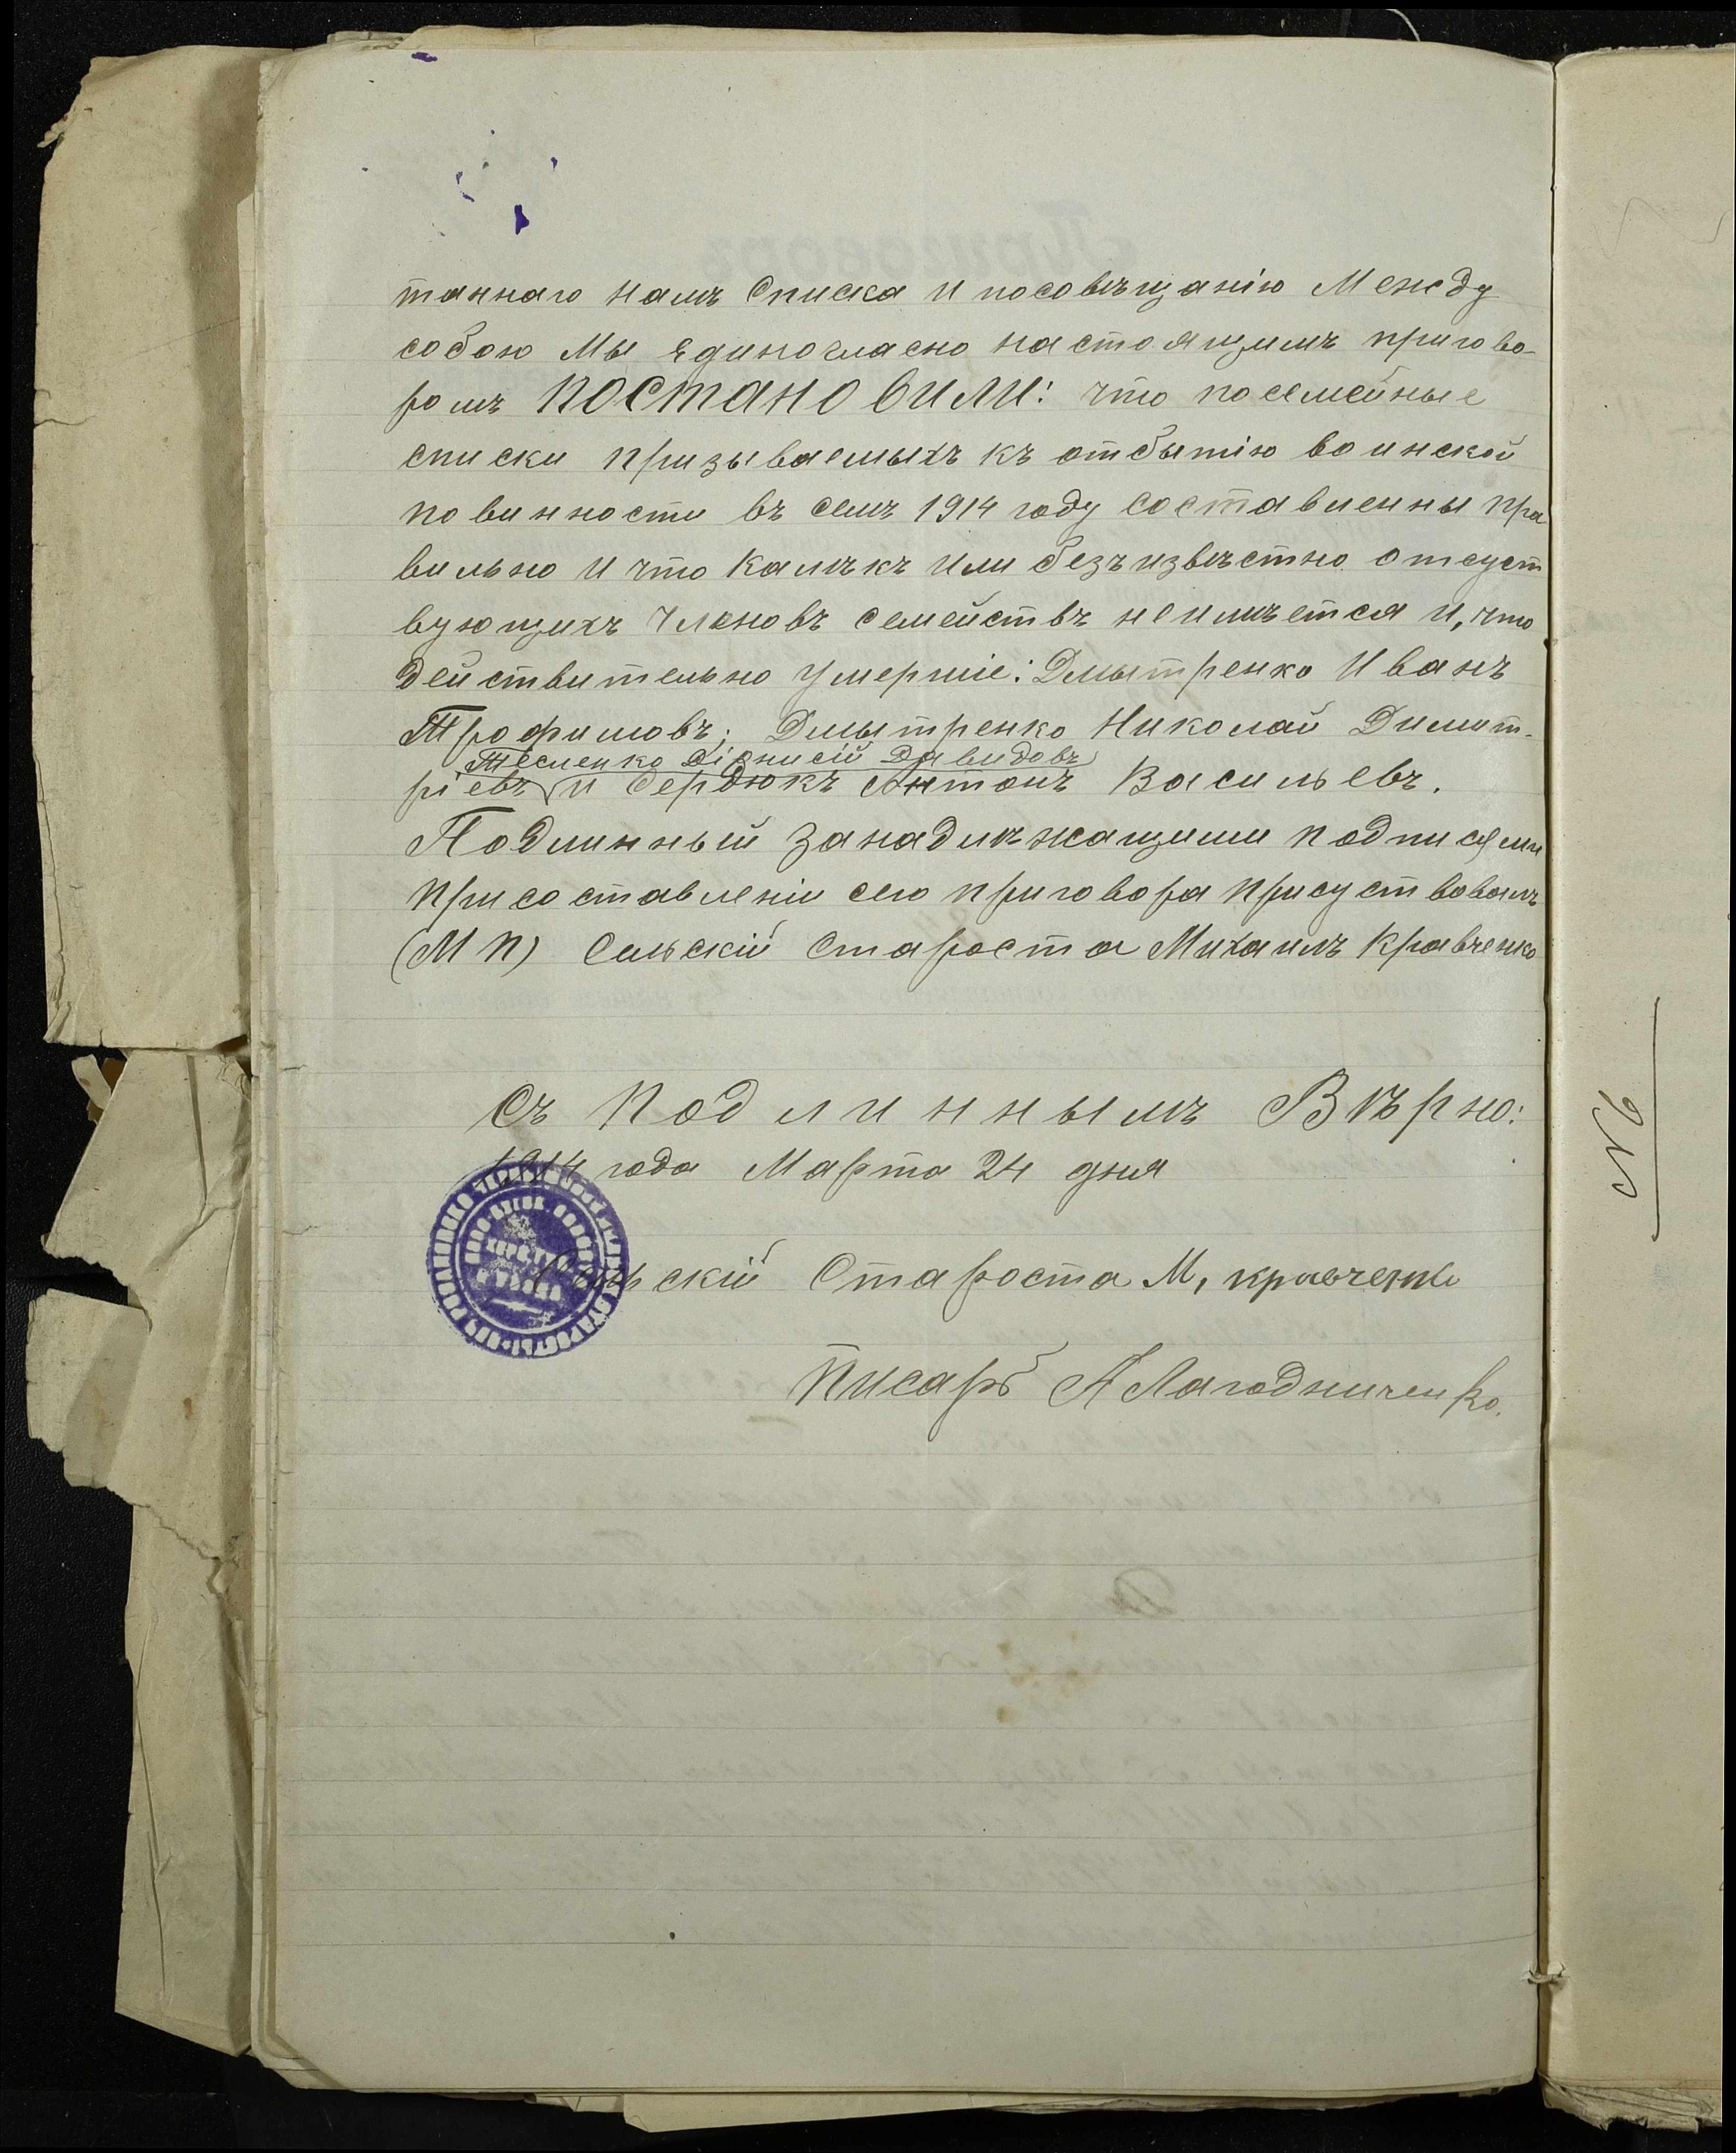 таннаго намъ списка и посовѣщанію Между
собою Мы единогласно настоящимъ пригово-
ромъ постановили: что посемейные
списки призываемыхъ къ отбытію воинской
повинности въ семъ 1914 году составленны пра
вильно и что калѣкъ или безъизвѣстно отсуст
вующихъ членовъ семействъ неимѣется и, что
действительно умершіе: Дмытренко Иванъ
Трофимовъ; Дмытренко Николай Димит-
Тесленко Діонисій Давидовъ
ріевъ и Сердюкъ Антонъ Васильевъ.
Подлинный занадлѣжащими подписями
присоставленіи сего приговора присуствовалъ
(М П) Сельскій Староста Михаилъ Кравченко
Съ Подлиннымъ Вѣрно:
1914 года Марта 24 дня
Сельскій Староста М, кравченко
Писарь А Лагодниченко.